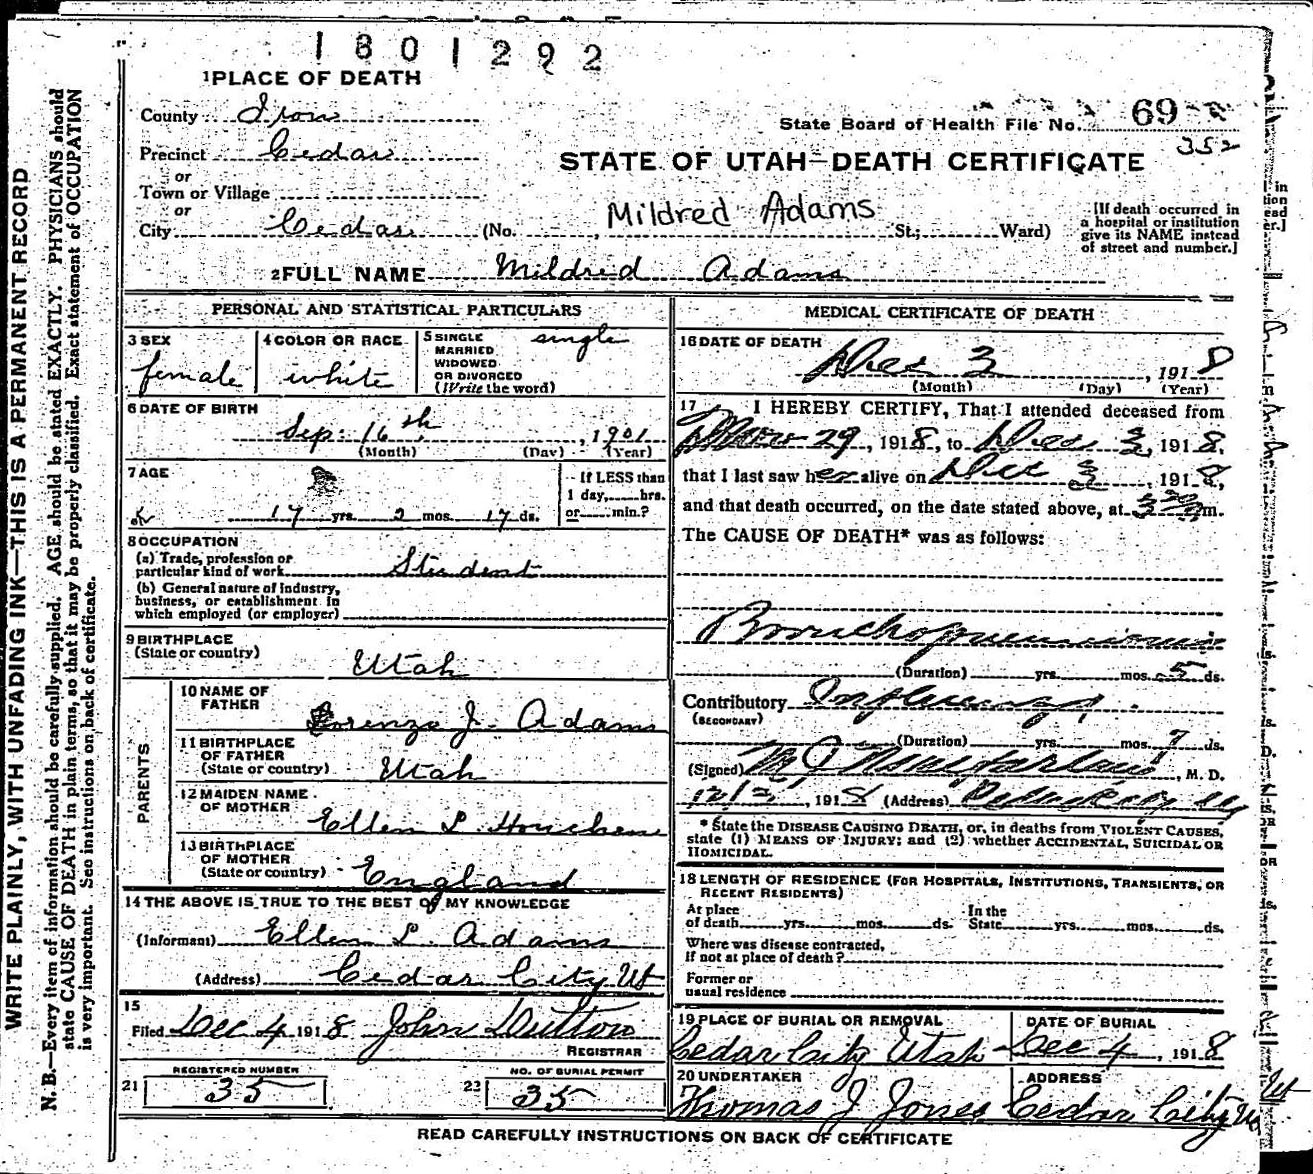 1801292
1 PLACE OF DEATH
County Iron
State Board of Health File No. 69
352
Precinct Cedar
STATE OF UTAH—DEATH CERTIFICATE
or
Town or Village
or
Mildred Adams
City Cedar (No. , St.; Ward)
[If death occurred in
a hospital or institution
give its NAME instead
of street and number.]
2 FULL NAME Mildred Adams
PERSONAL AND STATISTICAL PARTICULARS
3 SEX female
4 COLOR OR RACE white
5 SINGLE single
MARRIED
WIDOWED
OR DIVORCED
(Write the word)
6 DATE OF BIRTH
Sep. 16th, 1901
(Month) (Day) (Year)
7 AGE
17 yrs. 2 mos. 17 ds.
If LESS than
1 day, hrs.
or min.?
8 OCCUPATION
(a) Trade, profession or
particular kind of work Student
(b) General nature of industry,
business, or establishment in
which employed (or employer)
9 BIRTHPLACE
(State or country) Utah
PARENTS
10 NAME OF
FATHER Lorenzo J. Adams
11 BIRTHPLACE
OF FATHER
(State or country) Utah
12 MAIDEN NAME
OF MOTHER Ellen L
13 BIRTHPLACE
OF MOTHER
(State or country) England
14 THE ABOVE IS TRUE TO THE BEST OF MY KNOWLEDGE
(Informant) Ellen L. Adams
(Address) Cedar City Ut
15
Filed Dec 4 1918 John Dutton
REGISTRAR
21 REGISTERED NUMBER
35
22 NO. OF BURIAL PERMIT
35
MEDICAL CERTIFICATE OF DEATH
16 DATE OF DEATH
Dec 3, 1918
(Month) (Day) (Year)
17 I HEREBY CERTIFY, That I attended deceased from
Nov 29, 1918, to Dec 3, 1918,
that I last saw her alive on Dec 3, 1918,
and that death occurred, on the date stated above, at m.
The CAUSE OF DEATH* was as follows:
Bronchopneumonia
(Duration) yrs. mos. 5 ds.
Contributory Influenza
(SECONDARY)
(Duration) yrs. mos. 7 ds.
(Signed) M J Macfarlane, M. D.
12/3, 1918 (Address) Cedar City
* State the DISEASE CAUSING DEATH, or, in deaths from VIOLENT CAUSES,
state (1) MEANS OF INJURY; and (2) whether ACCIDENTAL, SUICIDAL OR
HOMICIDAL.
18 LENGTH OF RESIDENCE (FOR HOSPITALS, INSTITUTIONS, TRANSIENTS, OR
RECENT RESIDENTS)
At place
of death yrs. mos. ds.
In the
State yrs. mos. ds.
Where was disease contracted,
If not at place of death?
Former or
usual residence
19 PLACE OF BURIAL OR REMOVAL
Cedar City Utah
DATE OF BURIAL
Dec 4, 1918
20 UNDERTAKER
Thomas J Jones
ADDRESS
Cedar City Ut
READ CAREFULLY INSTRUCTIONS ON BACK OF CERTIFICATE
WRITE PLAINLY, WITH UNFADING INK—THIS IS A PERMANENT RECORD
N. B.—Every item of information should be carefully supplied. AGE should be stated EXACTLY. PHYSICIANS should
state CAUSE OF DEATH in plain terms, so that it may be properly classified. Exact statement of OCCUPATION
is very important. See instructions on back of certificate.